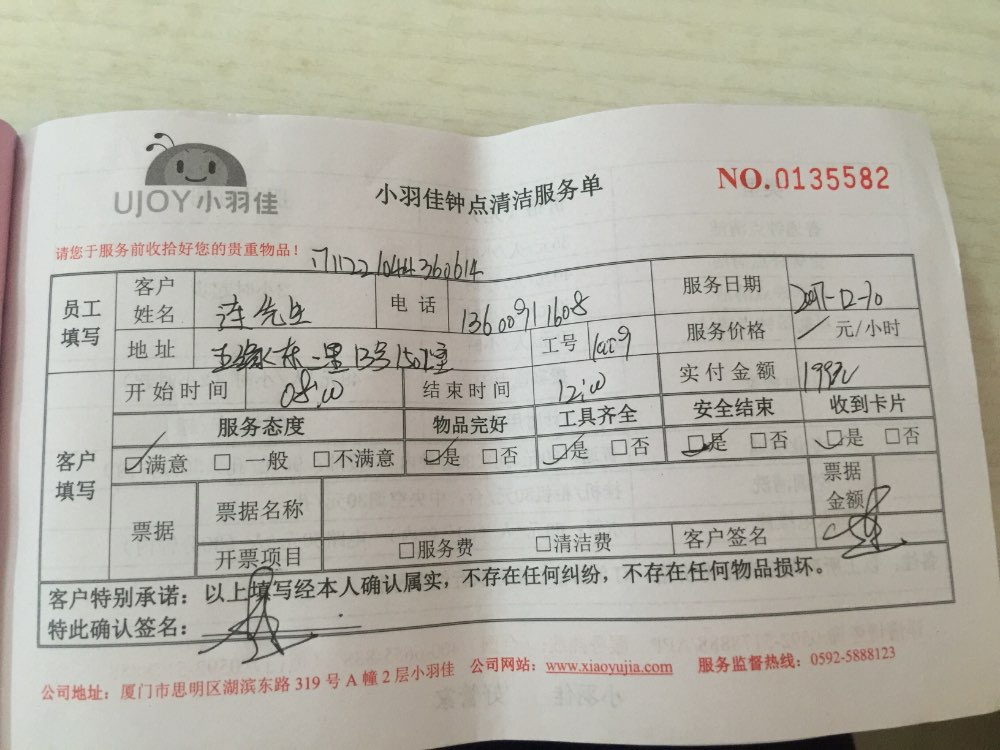 UJOY小羽佳
小羽佳钟点清洁服务单
NO.0135582
请您于服务前收拾好您的贵重物品！
员工填写
客户姓名 连先生 电话 13600911608 服务日期
地址 工号 服务价格 元/小时
开始时间 08:00 结束时间 12:00 实付金额
客户填写
服务态度 物品完好 工具齐全 安全结束 收到卡片
☑满意 □一般 □不满意 ☑是 □否 ☑是 □否 ☑是 □否 ☑是 □否
票据 票据名称 票据金额
开票项目 □服务费 □清洁费 客户签名
客户特别承诺：以上填写经本人确认属实，不存在任何纠纷，不存在任何物品损坏。
特此确认签名：
公司地址：厦门市思明区湖滨东路 319 号 A 幢 2 层小羽佳 公司网站：www.xiaoyujia.com 服务监督热线：0592-5888123